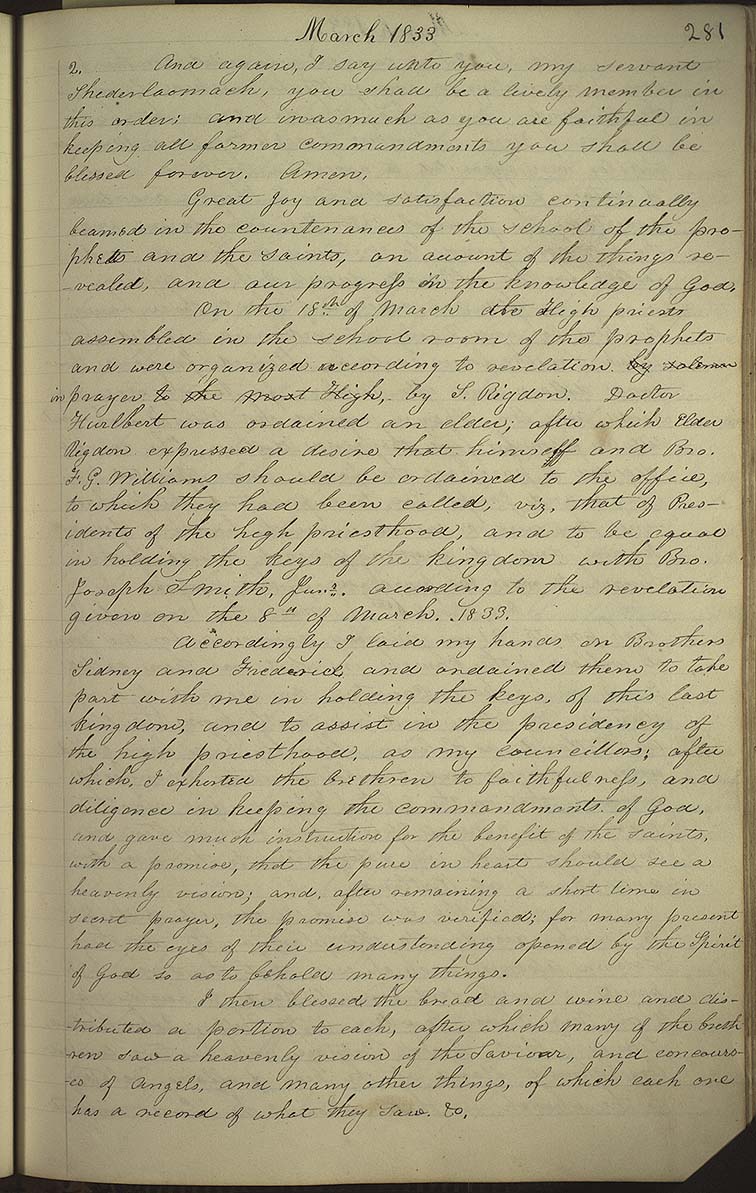 March 1833
281
2. And again, I say unto you, my servant
Shederlaomach, you shall be a lively member in
this order; and inasmuch as you are faithful in
keeping all former commandments you shall be
blessed forever. Amen.
Great Joy and satisfaction continually
beamed in the countenances of the school of the pro-
phets and the saints, on account of the things re-
-vealed, and our progress in the knowledge of God.
On the 18th of March the High priests
assembled in the school room of the prophets
and were organized according to revelation. by solemn
in prayer to the most High, by S. Rigdon. Doctor
Hurlbert was ordained an elder; after which Elder
Rigdon expressed a desire that himself and Bro.
F. G. Williams should be ordained to the office,
to which they had been called, viz, that of Pres-
idents of the high priesthood, and to be equal
in holding the keys of the kingdom with Bro.
Joseph Smith, Junr. according to the revelation
given on the 8th of March. 1833.
Accordingly I laid my hands on Brothers
Sidney and Frederick, and ordained them to take
part with me in holding the keys, of this last
kingdom, and to assist in the presidency of
the high priesthood, as my councillors; after
which, I exhorted the brethren to faithfulness, and
diligence in keeping the commandments of God,
and gave much instruction for the benefit of the saints,
with a promise, that the pure in heart should see a
heavenly vision; and, after remaining a short time in
secret prayer, the promise was verified; for many present
had the eyes of their understanding opened by the Spirit
of God so as to behold many things.
I then blessed the bread and wine and dis-
-tributed a portion to each, after which many of the breth
-ren saw a heavenly vision of the Saviour, and concours-
-es of angels, and many other things, of which each one
has a record of what they saw. &c.